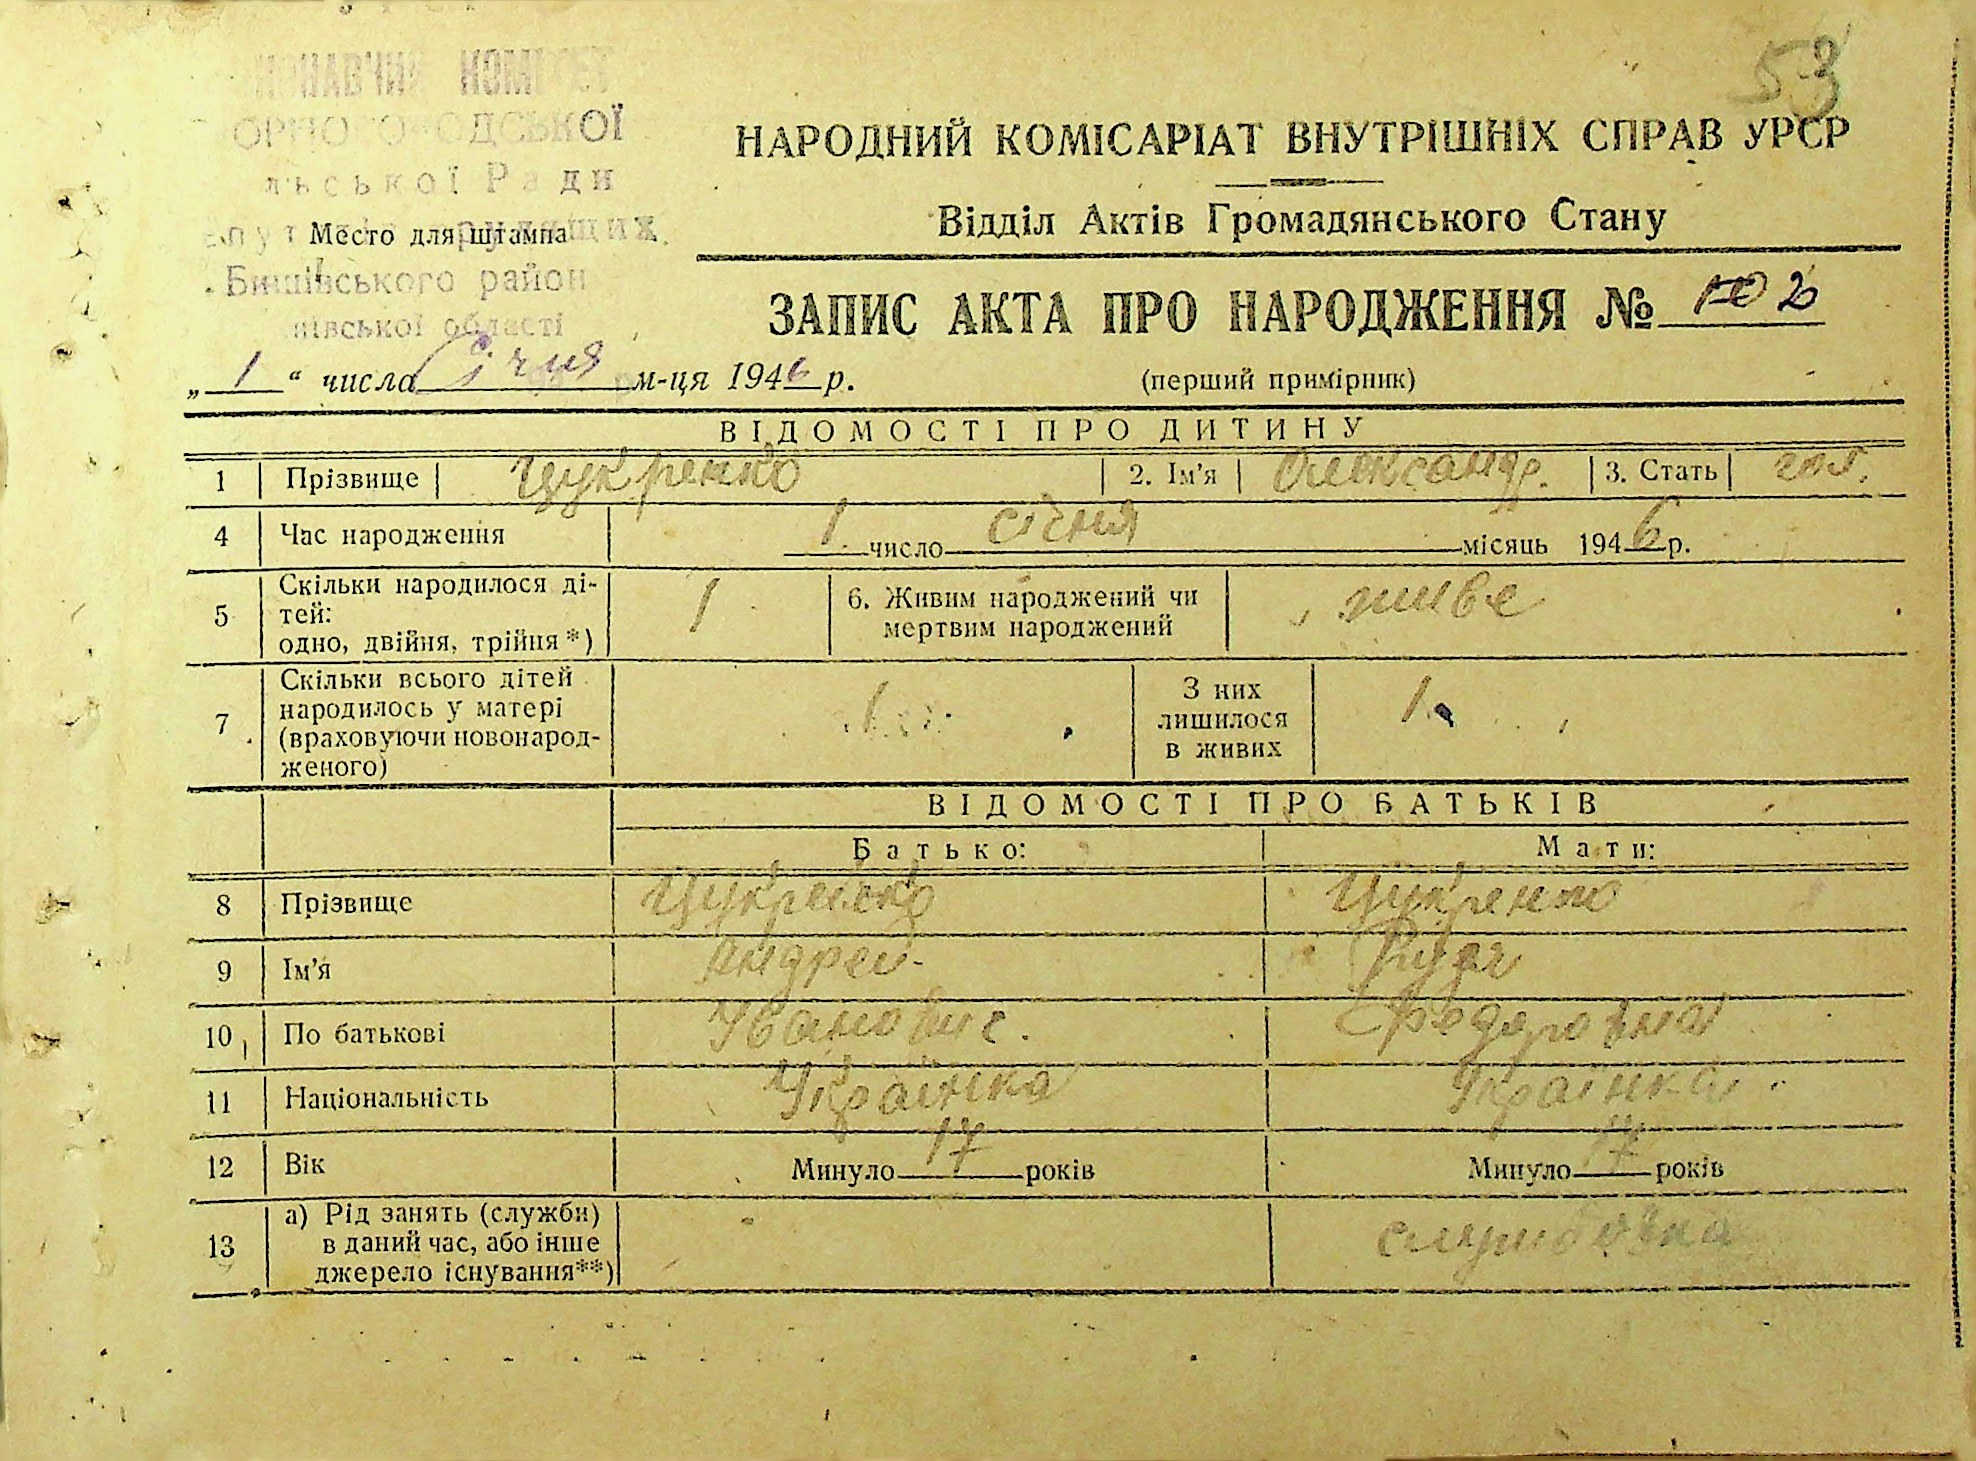 53
НАРОДНИЙ КОМІСАРІАТ ВНУТРІШНІХ СПРАВ УРСР
Відділ Актів Громадянського Стану
Место для штампа
Бишівського район
області
ЗАПИС АКТА ПРО НАРОДЖЕННЯ № 2
„ 1 “ числа Січня м-ця 1946 р.
(перший примірник)
ВІДОМОСТІ ПРО ДИТИНУ
1 Прізвище Цукренко 2. Ім'я Олександр. 3. Стать чол.
4 Час народження 1 число січня місяць 1946 р.
5 Скільки народилося ді-
тей:
одно, двійня, трійня *) 1
6. Живим народжений чи
мертвим народжений живе
7 Скільки всього дітей
народилось у матері
(враховуючи новонарод-
женого) 1
З них
лишилося
в живих 1
ВІДОМОСТІ ПРО БАТЬКІВ
Батько: Мати:
8 Прізвище Цукренко Цукренко
9 Ім'я Андрей
10 По батькові Іванович. Федоровна
11 Національність Українка Українка
12 Вік Минуло 17 років Минуло років
13 а) Рід занять (служби)
в даний час, або інше
джерело існування**) службовка